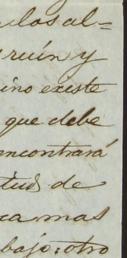 los al=
ruin y
ino existe
que debe
encontrará
tud de
ca mas
bajo, otro